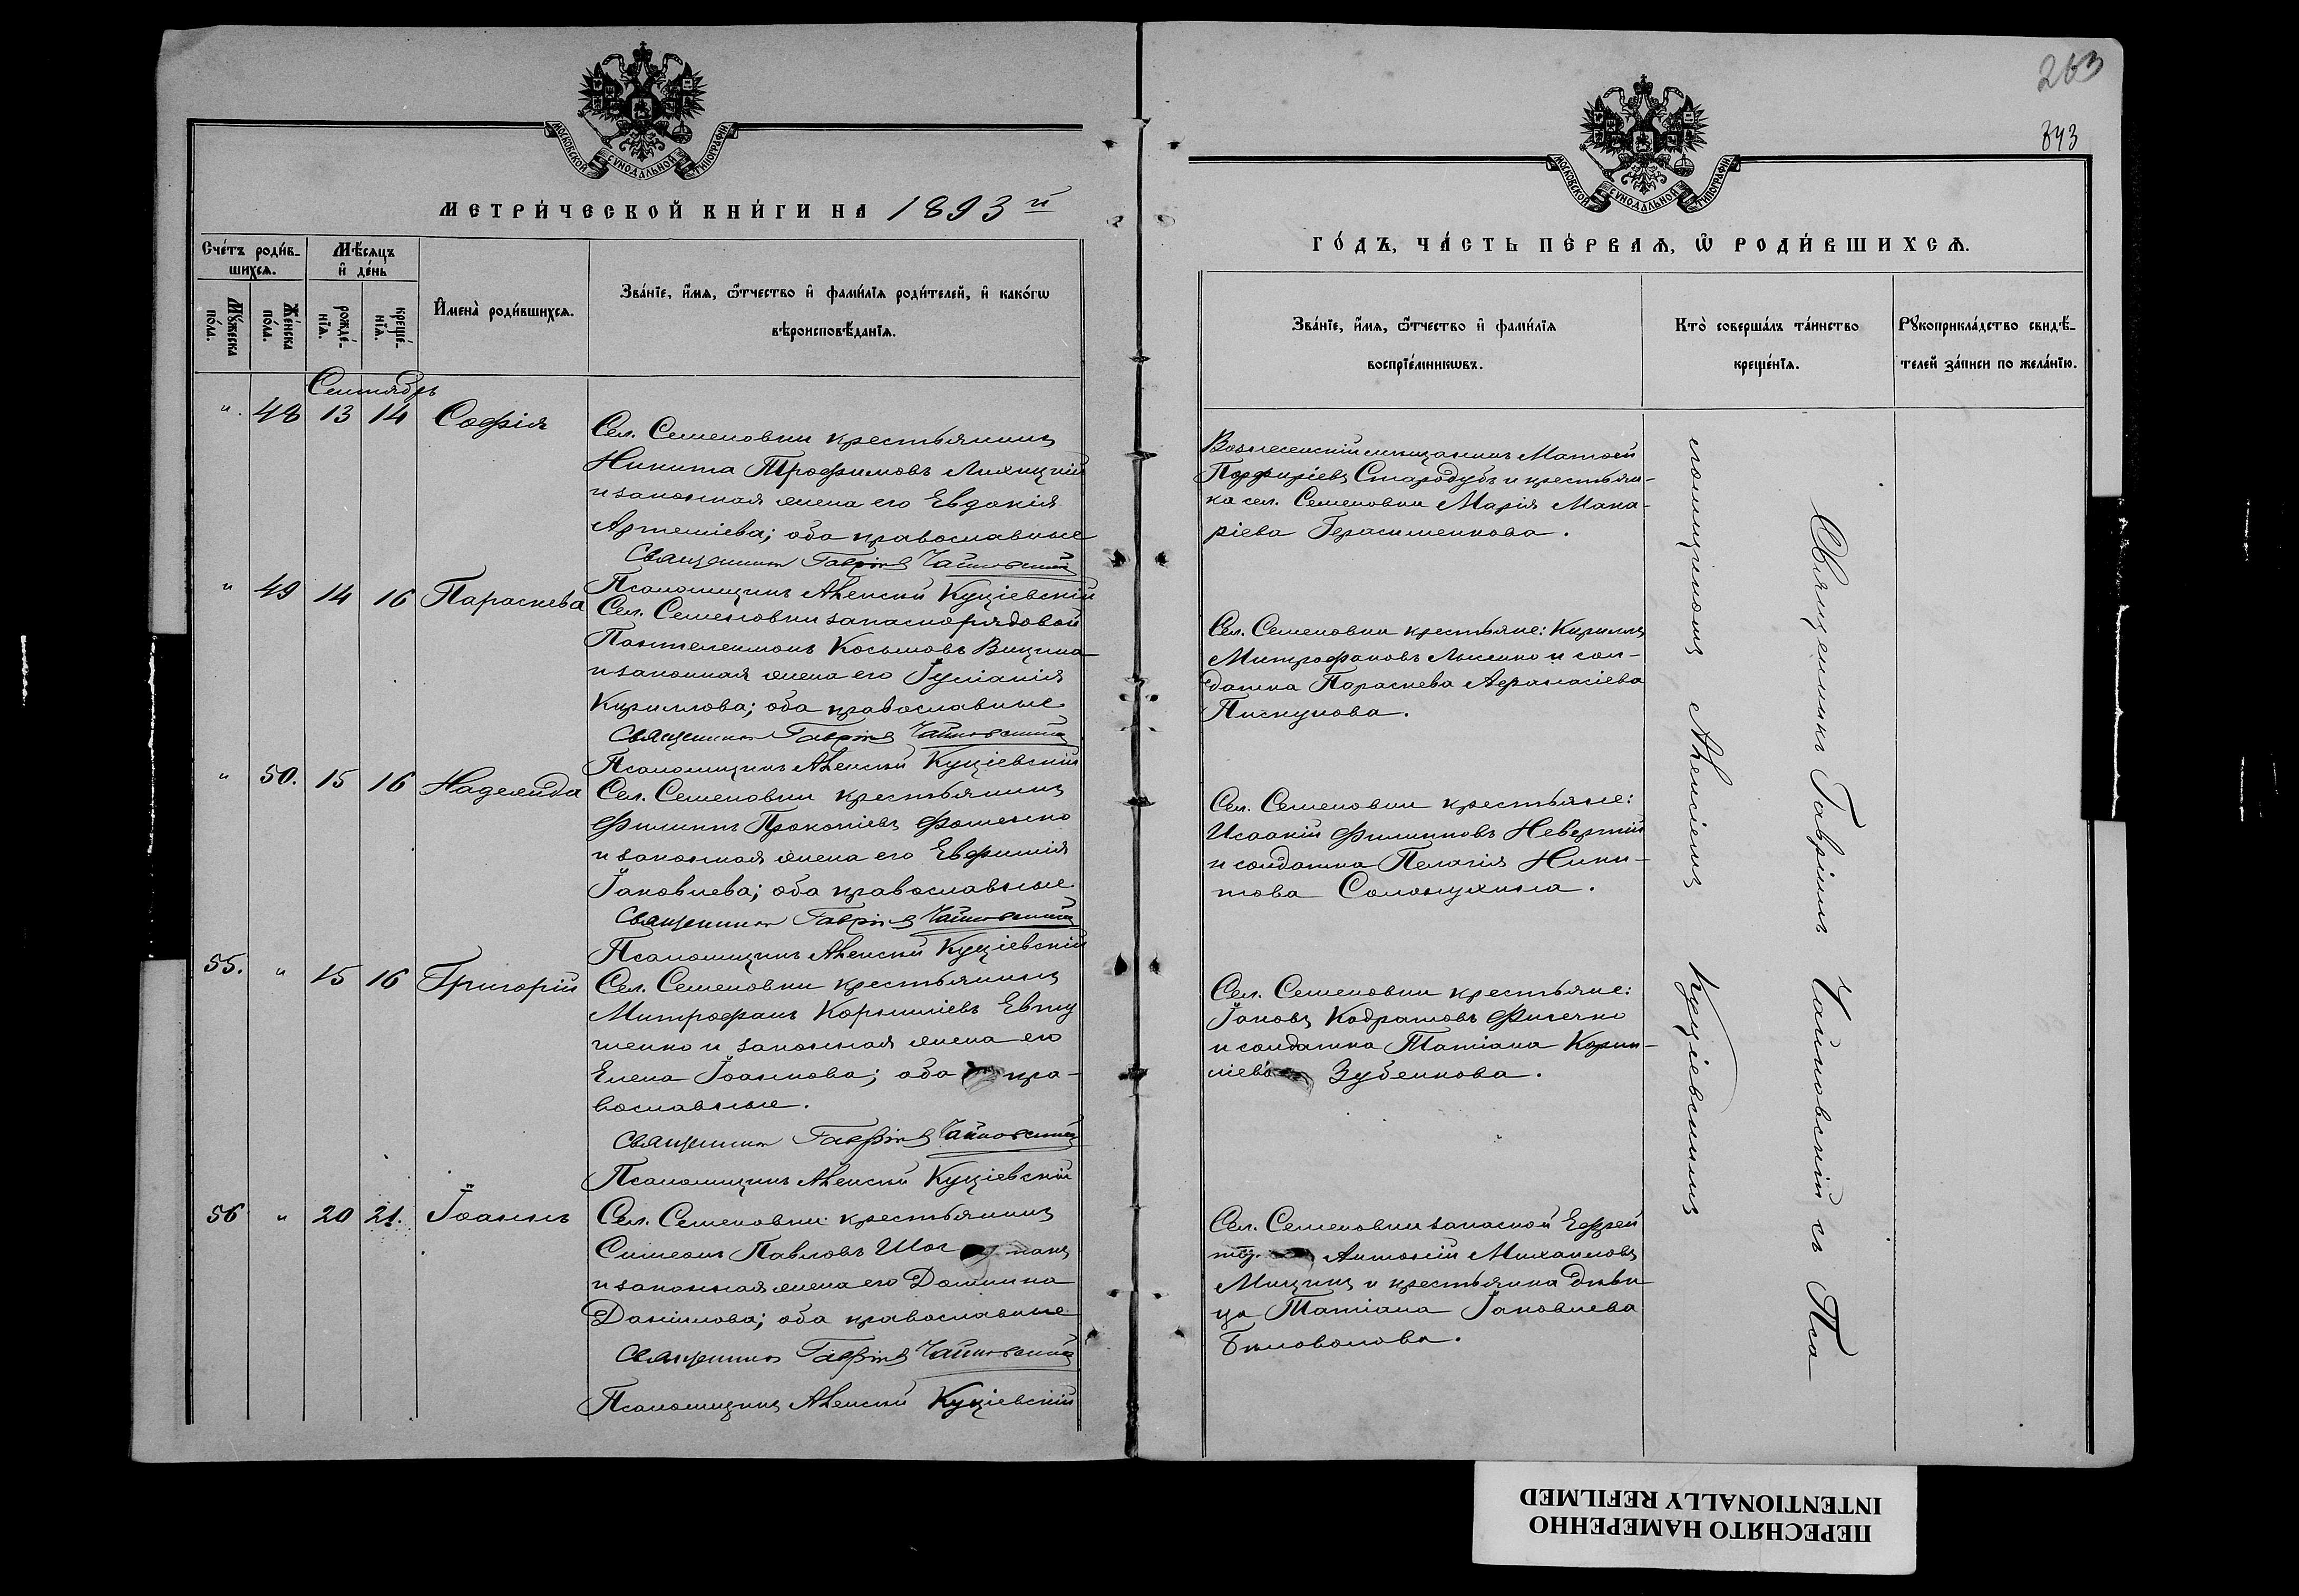 263
843
МОСКОВСКОЙ СѴНОДАЛЬНОЙ ТИПОГРАФІИ
МЕТРИ́ЧЕСКОЙ КНИ́ГИ НА 1893 й
Сче́тъ роди́в-
шихсѧ.
Мѣ́сѧцъ
и҆ де́нь
И҆мена̀ роди́вшихсѧ.
Зва́нїе, и҆́мѧ, ѻ҆́тчество и҆ фами́лїѧ роди́телей, и҆ како́гѡ
вѣроисповѣ́данїѧ.
Мꙋ́жеска
по́ла.
Же́нска
по́ла.
рожде́-
нїѧ.
креще́-
нїѧ.
Сентябрь
" 48 13 14 Софія
Сел. Семеновки крестьянинъ
Никита Трофимовъ
и законная жена его Евдокія
Артеміева; оба православные
Священникъ Гавріилъ Чайковскій
Псаломщикъ Алексѣй Куціевскій
" 49 14 16 Параскева
Сел. Семеновки запаснорядовой
Пантелеимонъ Косьмовъ
и законная жена его Іуліанія
Кириллова; оба православные
Священникъ Гавріилъ Чайковскій
Псаломщикъ Алексѣй Куціевскій
" 50. 15 16 Надежда
Сел. Семеновки крестьянинъ
Филиппъ Прокопіевъ Фоменко
и законная жена его Евфимія
Іаковлева; оба православные
Священникъ Гавріилъ Чайковскій
Псаломщикъ Алексѣй Куціевскій
55. " 15 16 Григорій
Сел. Семеновки крестьянинъ
Митрофанъ Корниліевъ Евту
шенко и законная жена его
Елена Іоаннова; оба пра-
вославные.
Священникъ Гавріилъ Чайковскій
Псаломщикъ Алексѣй Куціевскій
56 " 20 21. Іоаннъ
Сел. Семеновки крестьянинъ
Симеонъ Павловъ
и законная жена его Домника
Даніилова; оба православные
Священникъ Гавріилъ Чайковскій
Псаломщикъ Алексѣй Куціевскій
МОСКОВСКОЙ СѴНОДАЛЬНОЙ ТИПОГРАФІИ
ГО́ДЪ, ЧА́СТЬ ПЕ́РВАѦ, Ѡ҆ РОДИ́ВШИХСѦ.
Зва́нїе, и҆́мѧ, ѻ҆́тчество и҆ фами́лїѧ
воспрїе́мникѡвъ.
Кто̀ соверша́лъ та́инство
креще́нїѧ.
Рꙋкоприкла́дство свидѣ́-
телей за́писи по жела́нїю.
Вознесенскій мѣщанинъ Матѳей
Порфиріевъ Стародубъ и крестьян-
ка сел. Семеновки Марія Мака-
ріева Герасименкова.
Сел. Семеновки крестьяне: Кириллъ
Митрофановъ Лысенко и сол-
датка Параскева Аѳанасіева
Пискунова.
Сел. Семеновки крестьяне:
Исаакій Филипповъ
и солдатка Пелагія Ники-
това Солонухина.
Сел. Семеновки крестьяне:
Іаковъ Кодратовъ
и солдатка Татіана Корни-
ліева Зубенкова.
Сел. Семеновки запасной Ефрей
тор. Антоній Михаиловъ
и крестьянка дѣви
ца Татіана Іаковлева
Бѣловолова.
Священникъ Гавріилъ Чайковскій съ Пса
ломщикомъ Алексіемъ Куціевскимъ
ПЕРЕСНЯТО НАМЕРЕННО
INTENTIONALLY REFILMED